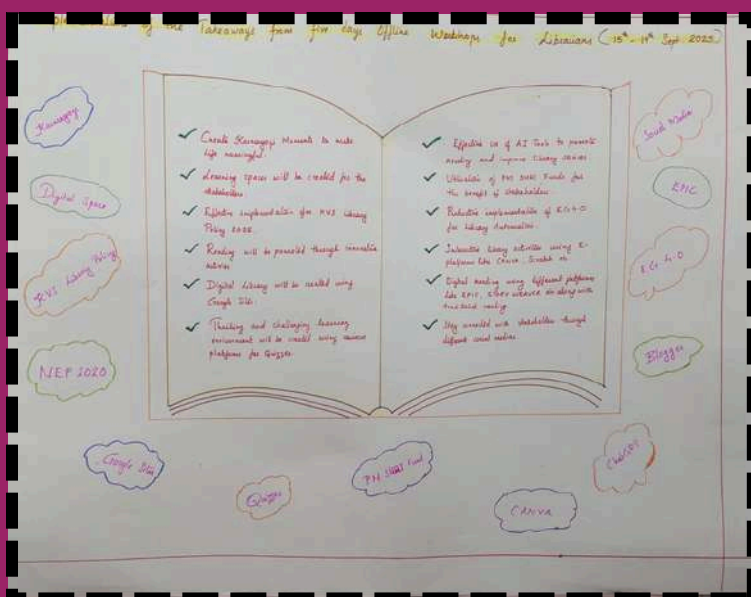 of the Takeaways from five days Offline Workshop for Librarians (15th - 19th Sept 2025)
Karmayogi
Digital Space
KVS Library Policy
NEP 2020
Create Karmayogi Moments to make
life meaningful.
Learning spaces will be created for the
stakeholders
Effective implementation of KVS Library
Policy
Reading will be promoted through innovative
activities
Digital Library will be created using
Google Sites.
Thrilling and challenging learning
environment will be created using various
platforms for Quizzes.
Effective use of AI Tools to promote
reading and improve library services
Utilisation of PM SHRI Funds for
the benefit of stakeholders
implementation of E.G 4.0
for Library Automation.
Interactive library activities using E-
platforms like Canva, Scratch etc.
Digital reading using different platforms
like EPIC, STORY WEAVER etc along with
reading
Stay connected with stakeholders through
different social medias
Social Media
EPIC
E.G 4.0
Blogger
Google Sites
Quizzes
PM SHRI Fund
CANVA